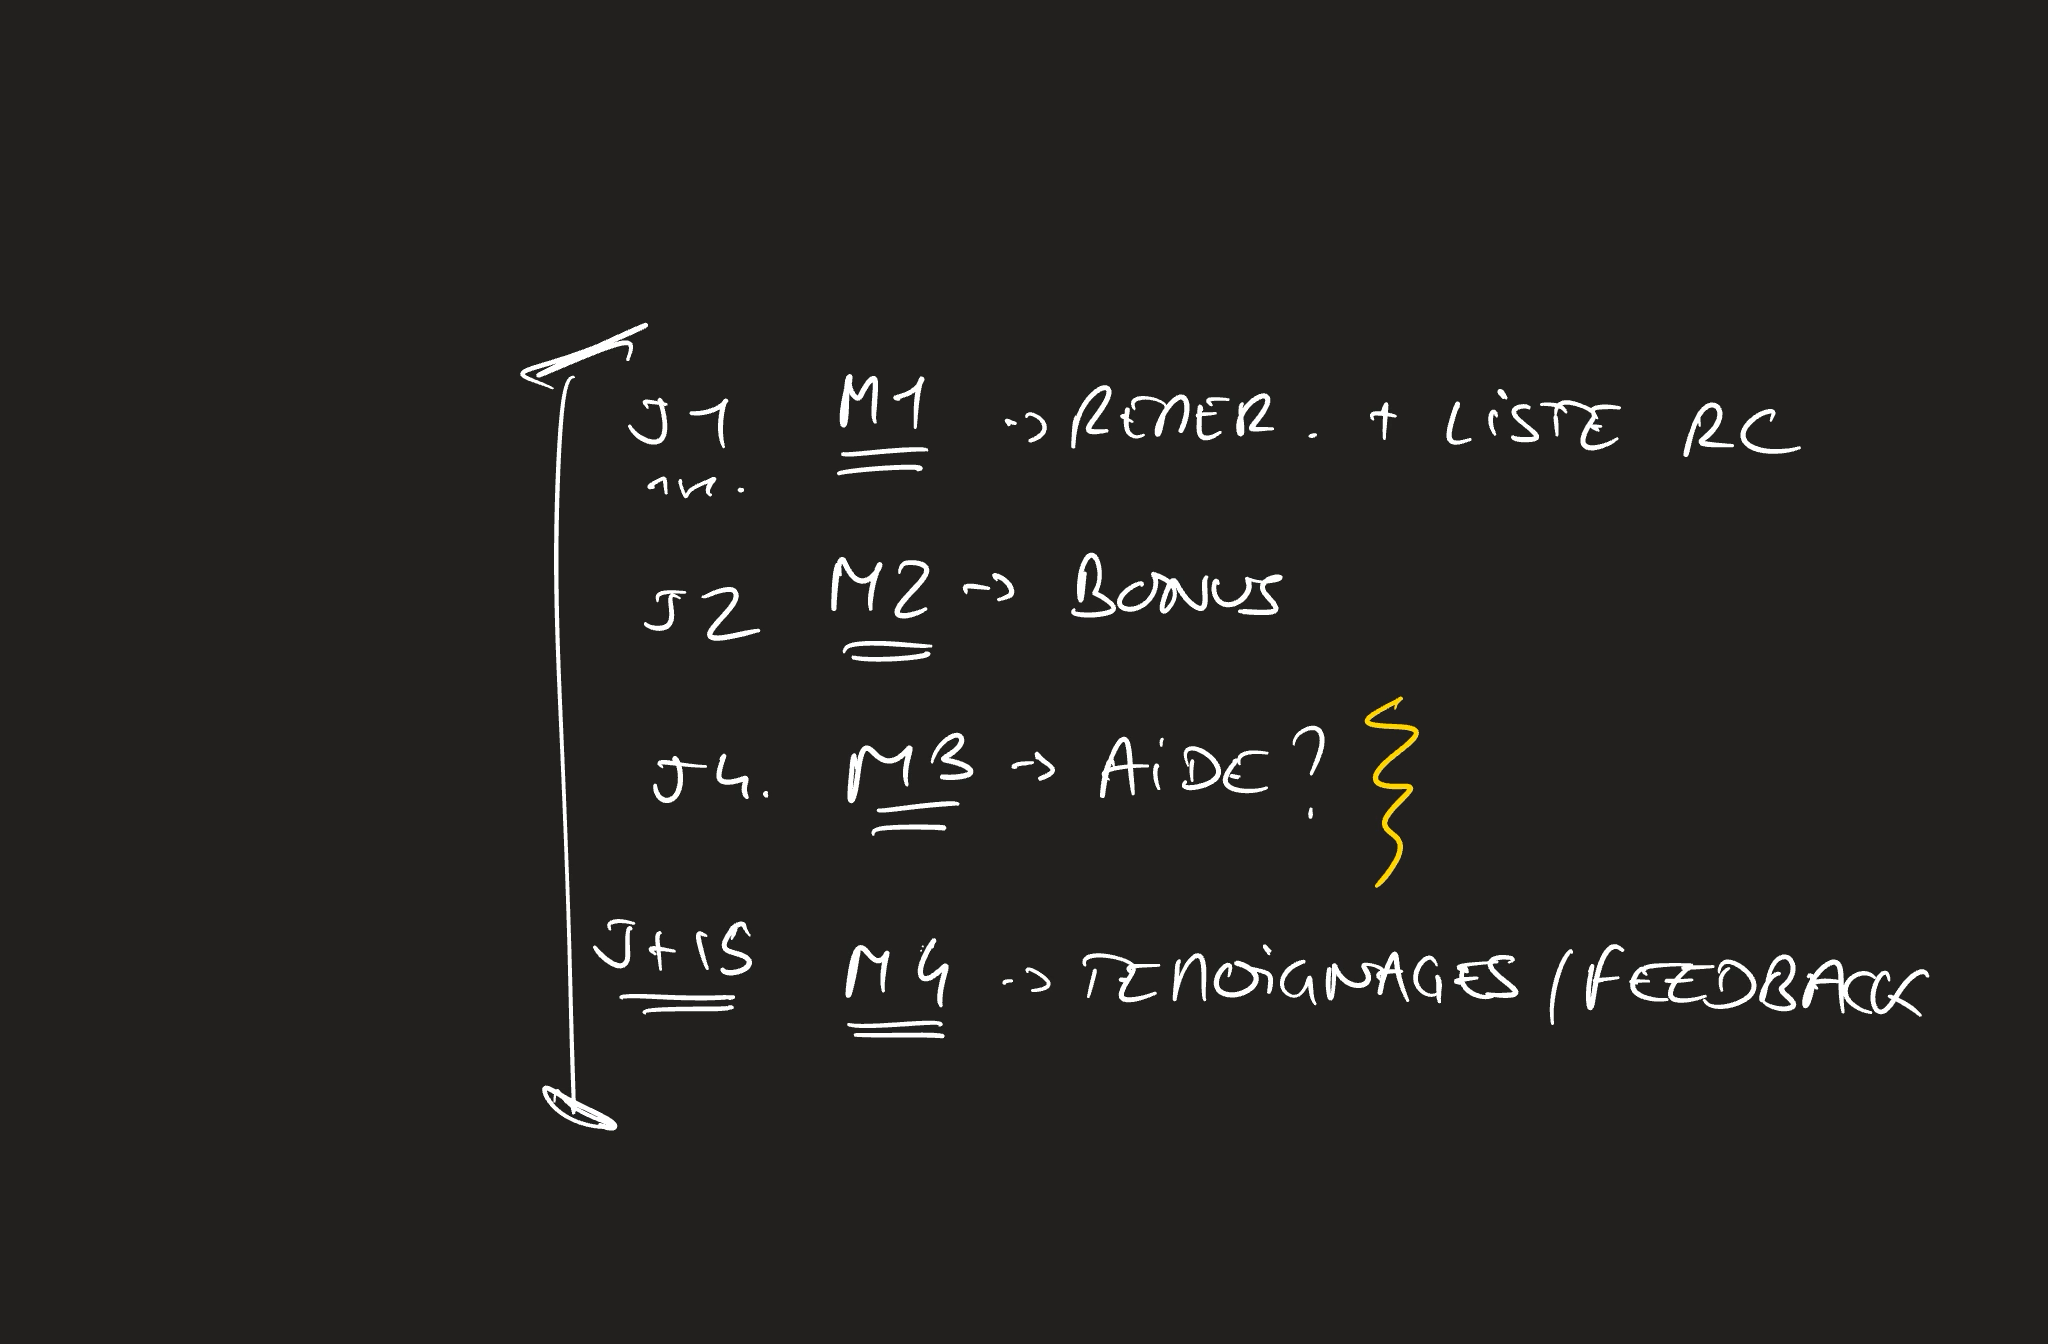 J1 M1 -> REMER. + LiSTE RC
J2 M2 -> BONUS
J4. M3 -> AiDE?
J+15 M4 -> TEMOiGNAGES / FEEDBACK